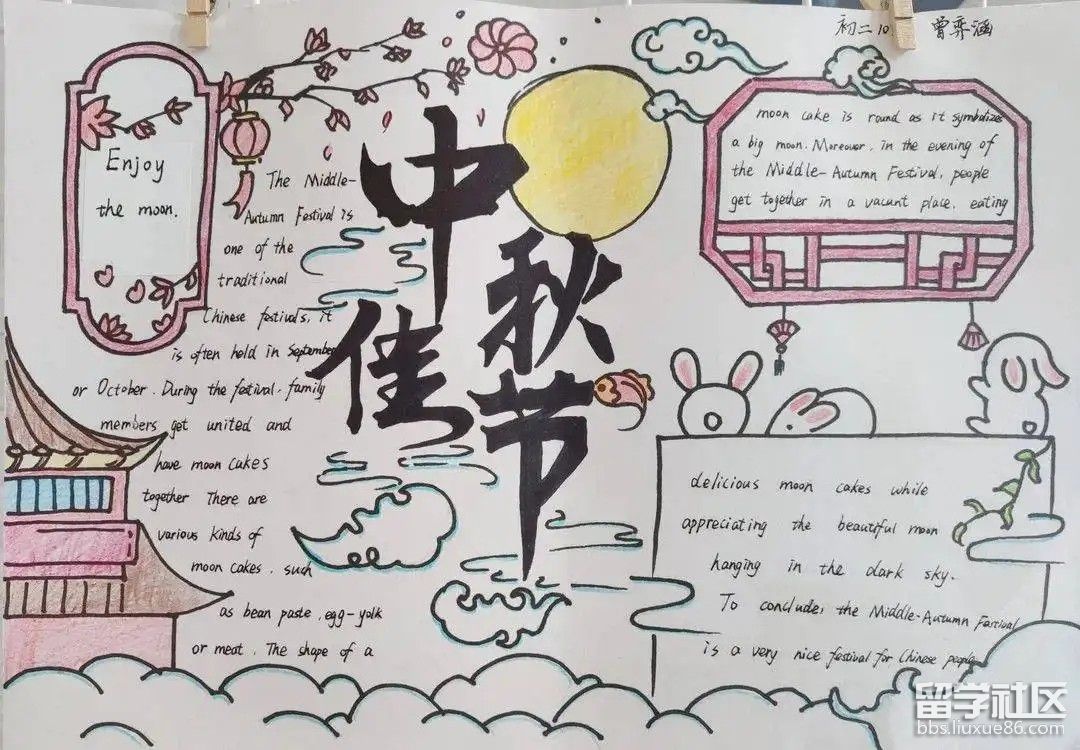 初二10 曾弈涵
Enjoy
the moon.
中秋
佳节
The Middle-
Autumn Festival is
one of the
traditional
Chinese festivals, it
is often held in September
or October. During the festival, family
members get united and
have moon cakes
together There are
various kinds of
moon cakes, such
as bean paste, egg-yolk
or meat. The shape of a
moon cake is round as it symbolizes
a big moon. Moreover, in the evening of
the Middle-Autumn Festival, people
get together in a vacant place, eating
delicious moon cakes while
appreciating the beautiful moon
hanging in the dark sky.
To conclude, the Middle-Autumn Fastival
is a very nice festival for Chinese people
留学社区
bbs.liuxue86.com